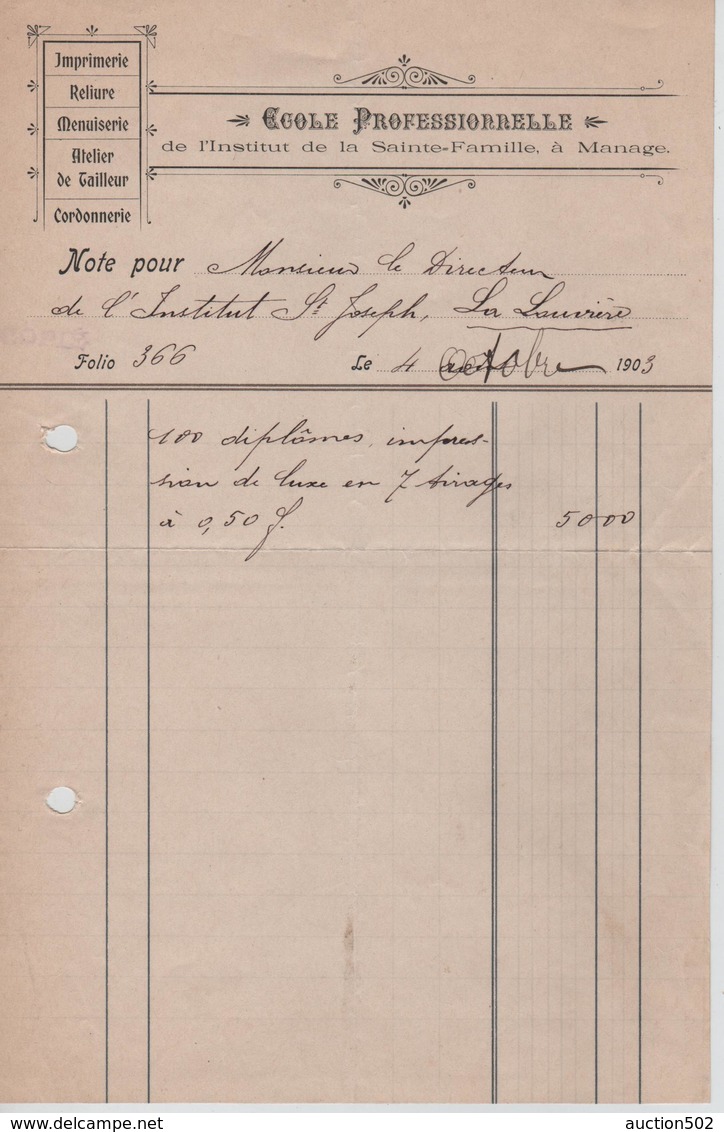 Imprimerie
Reliure
Menuiserie
Atelier
de Tailleur
Cordonnerie
Ecole Professionnelle
de l'Institut de la Sainte-Famille, à Manage.
Note pour Monsieur le Directeur
de l'Institut St Joseph, La Louvière
Folio 366 Le 4 Octobre 1903
100 diplômes, impres-
sion de luxe en 7 tirages
à 0,50 f. 50 00
auction502